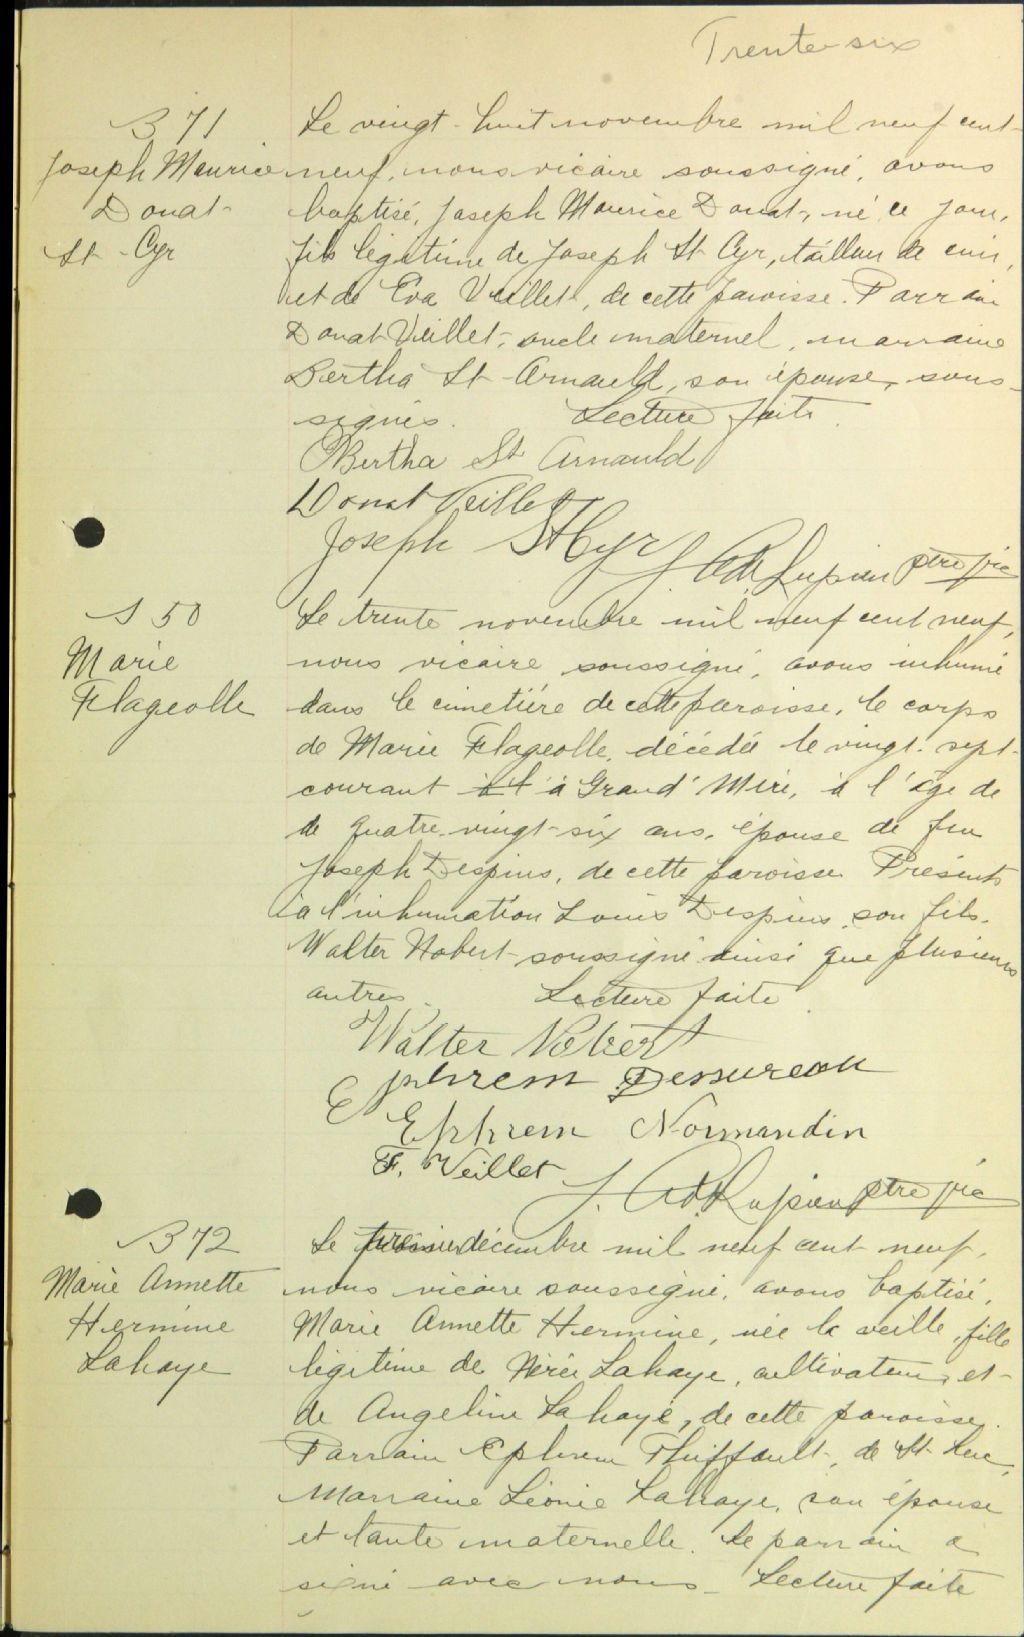 Trente-six
B 71
Joseph Maurice
Donat
St-Cyr
Le vingt-huit novembre mil neuf cent
neuf, nous vicaire soussigné, avons
baptisé, Joseph Maurice Donat, né ce jour,
fils légitime de Joseph St Cyr, tailleur de cuir,
et de Eva Veillet, de cette paroisse. Parrain
Donat Veillet, oncle maternel, marraine
Bertha St-Arnauld, son épouse, sous-
signés. Lecture faite.
Bertha St Arnauld
Donat Veillet
Joseph St Cyr
ptre vic
S 50
Marie
Flageolle
Le trente novembre mil neuf cent neuf,
nous vicaire soussigné, avons inhumé
dans le cimetière de cette paroisse, le corps
de Marie Flageolle, décédée le vingt-sept
courant à Grand'Mère, à l'âge de
de quatre-vingt-six ans, épouse de feu
Joseph Despins, de cette paroisse. Présents
à l'inhumation Louis Despins, son fils.
Walter Nobert soussigné ainsi que plusieurs
autres. Lecture faite.
Walter Nobert
Ephrem Dessureau
Ephrem Normandin
F. Veillet
ptre vic
B 72
Marie Annette
Hermine
Lahaye
Le premier décembre mil neuf cent neuf,
nous vicaire soussigné, avons baptisé,
Marie Annette Hermine, née la veille, fille
légitime de Nérée Lahaye, cultivateur, et
de Angeline Lahaye, de cette paroisse.
Parrain Ephrem Thiffault, de St-Luc,
Marraine Léonie Lahaye, son épouse
et tante maternelle. Le parrain a
signé avec nous. Lecture faite